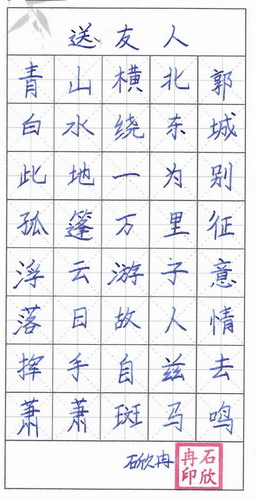 送友人
青山横北郭
白水绕东城
此地一为别
孤篷万里征
浮云游子意
落日故人情
挥手自兹去
萧萧斑马鸣
石欣冉
石欣冉印